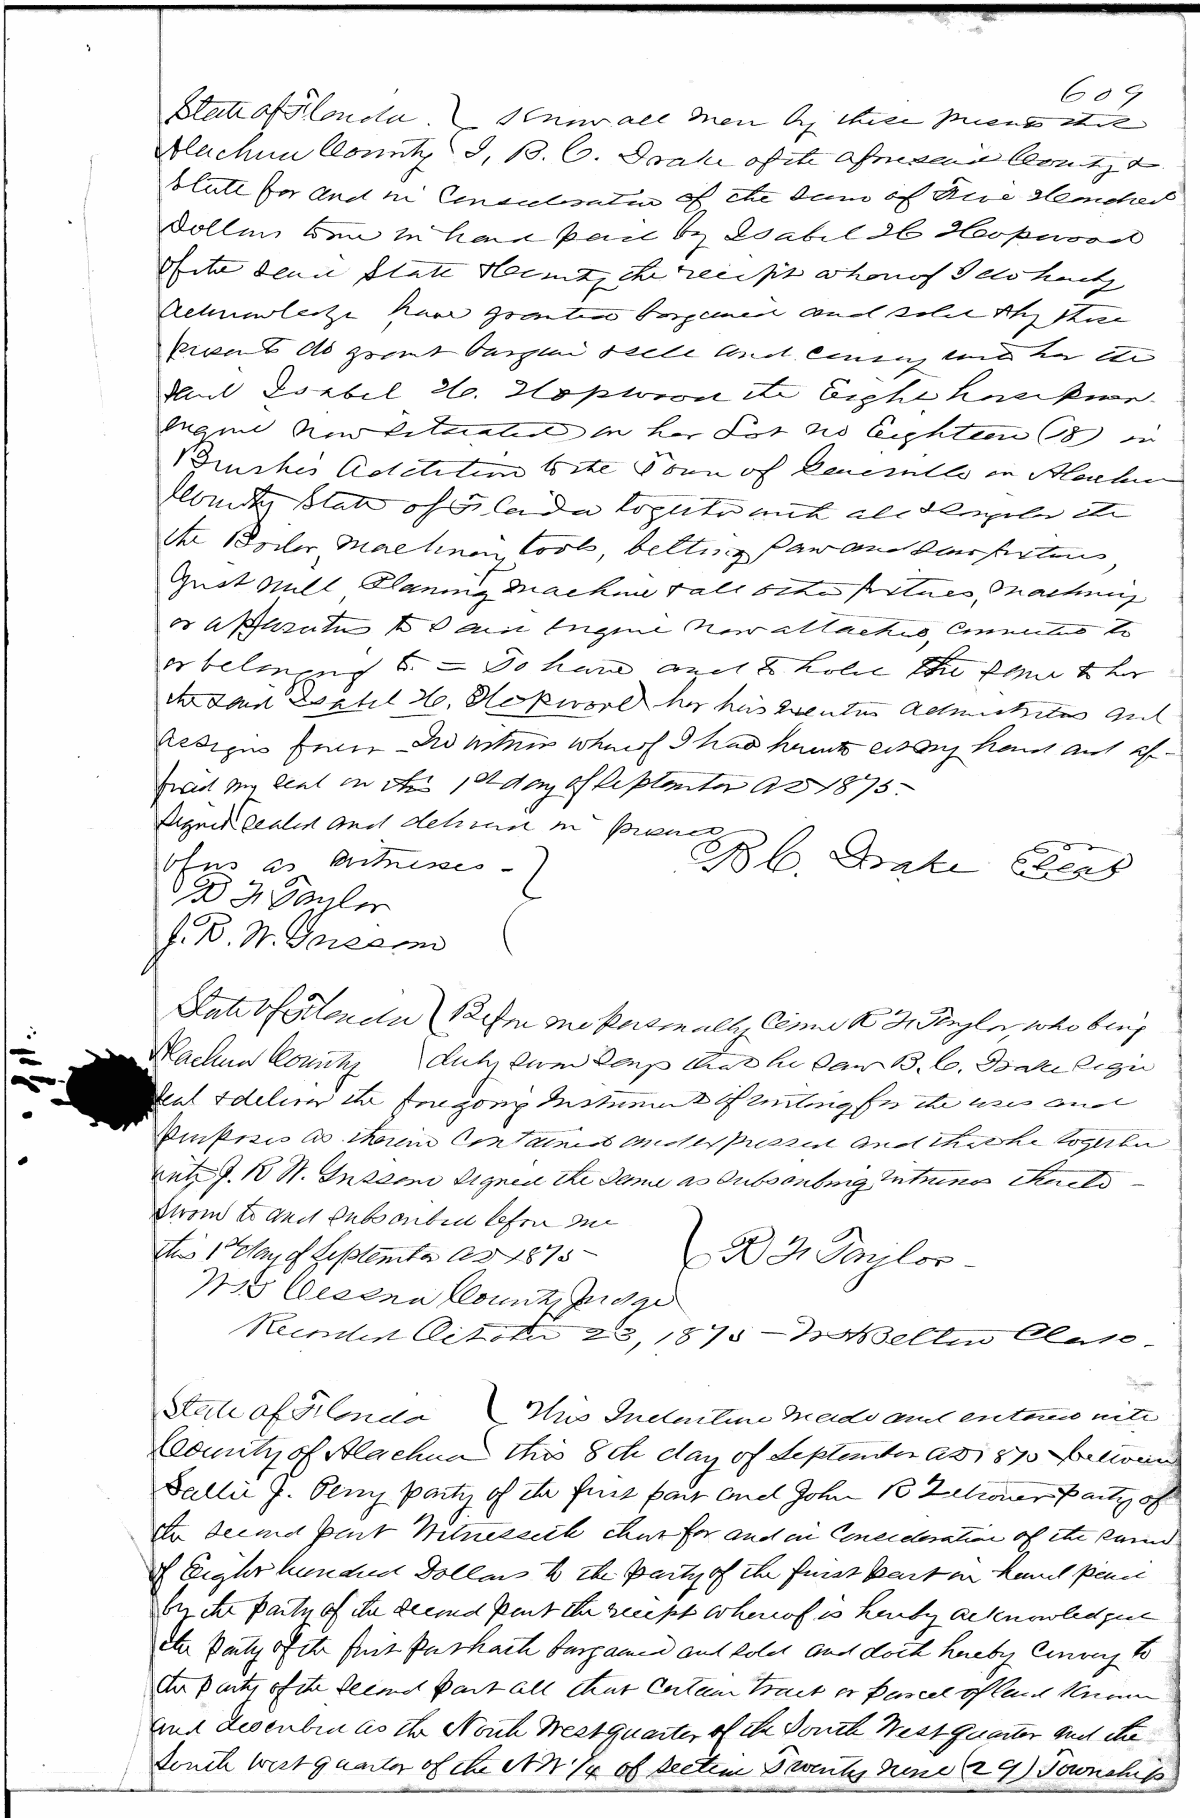 609
State of Florida } Know all men by these presents that
Alachua County } I, B. C. Drake of the aforesaid County &
State for and in Consideration of the sum of Five Hundred
Dollars to me in hand paid by Isabel H Hopwood
of the said State & County the receipt whereof I do hereby
acknowledge have granted bargained and sold & by these
presents do grant bargain & sell and convey unto her the
said Isabel H. Hopwood the Eight horse power
engine now situated on her Lot no Eighteen (18) in
Brush's Addition to the Town of Gainesville in Alachua
County State of Florida together with all & singular the
the Boiler, machinery, tools, belting saw and saw fixtures,
Grist mill, Planing machine & all other fixtures, machinery
or apparatus to said Engine now attached, connected to
or belonging to = To have and to hold the same to her
the said Isabel H. Hopwood her heirs executors administrators and
assigns forever - In witness whereof I have hereunto set my hand and af-
fixed my seal on this 1st day of September AD 1875 -
Signed sealed and delivered in presence
of us as witnesses - } B C. Drake Seal
R H Taylor
J. R. W. Grissom
State of Florida } Before me personally came R H Taylor, who being
Alachua County } duly sworn says that he saw B. C. Drake sign
seal & deliver the foregoing Instrument of writing for the uses and
purposes as therein contained and expressed and that he together
with J. R W. Grissom signed the same as subscribing witnesses thereto -
Sworn to and subscribed before me
this 1st day of September AD 1875 - } R H Taylor -
Cessna County Judge
Recorded October 23, 1875 - Belton Clerk -
State of Florida } This Indenture made and entered into
County of Alachua } this 8th day of September AD 1875 between
Sallie J. Perry party of the first part and John R Zetrouer party of
the second part Witnesseth that for and in Consideration of the sum
of Eight hundred Dollars to the party of the first part in hand paid
by the party of the second part the receipt whereof is hereby acknowledged
the party of the first part hath bargained and sold and doth hereby Convey to
the party of the second part all that certain tract or parcel of land known
and described as the North West quarter of the South West quarter and the
South West quarter of the NW 1/4 of section Twenty nine (29) Township